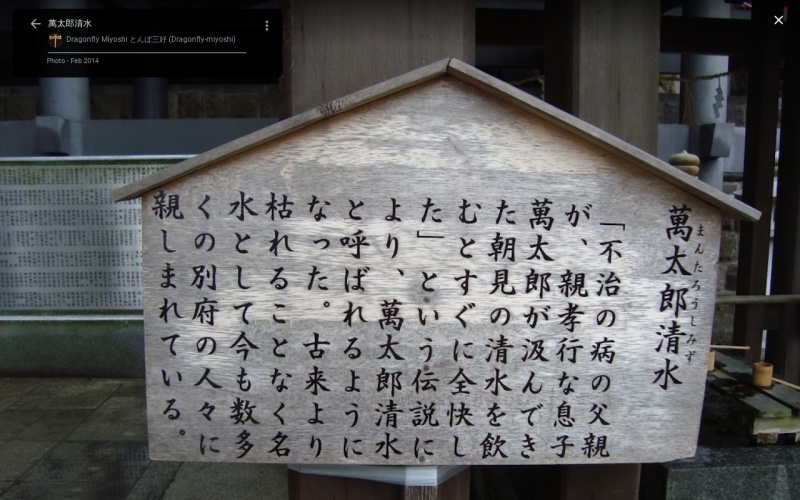 萬太郎清水
Dragonfly Miyoshi とんぼ三好 (Dragonfly-miyoshi)
Photo - Feb 2014
萬太郎清水
まんたろうしみず
「不治の病の父親
が、親孝行な息子
萬太郎が汲んでき
た朝見の清水を飲
むとすぐに全快し
た」という伝説に
より、萬太郎清水
と呼ばれるように
なった。古来より
枯れることなく名
水として今も数多
くの別府の人々に
親しまれている。